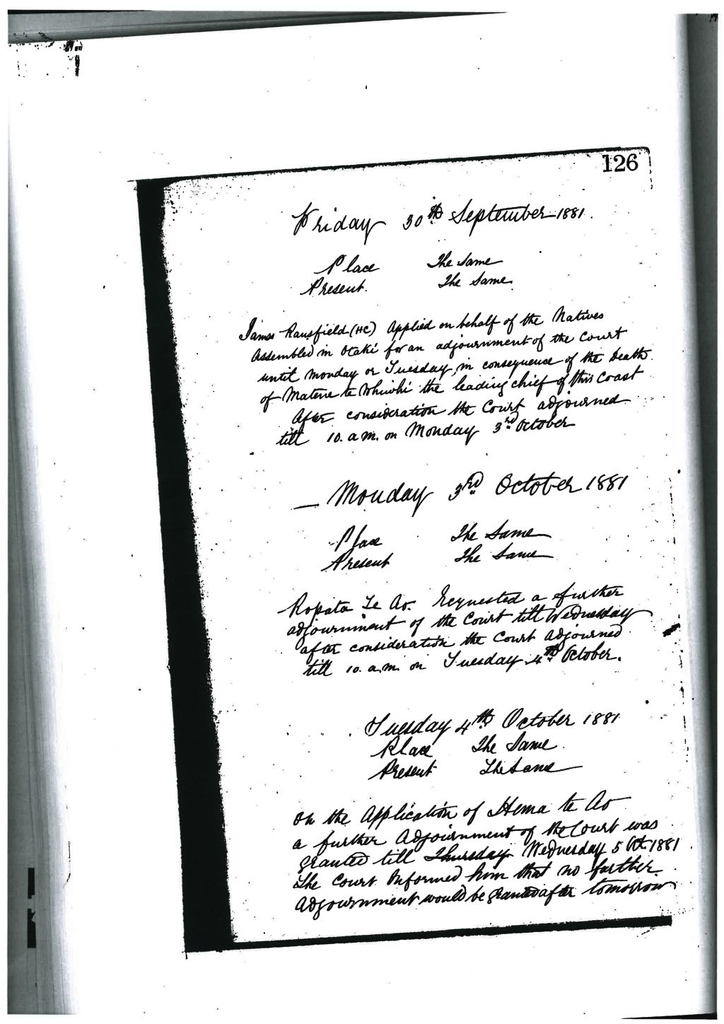 126
Friday 30th September 1881.
Place The Same
Present. The Same.
James Ransfield (HC) Applied on behalf of the Natives
Assembled in Otaki for an adjournment of the Court
until Monday or Tuesday in consequence of the Death
of Matene te Whiwhi the leading chief of this Coast
After consideration the Court adjourned
till 10. a.m. on Monday 3rd October
Monday 3rd October 1881
Place The Same
Present The Same
Ropata Te Ao. Requested a further
adjournment of the Court till Wednesday
after consideration the Court adjourned
till 10. a.m. on Tuesday 4th October.
Tuesday 4th October 1881
Place The Same
Present The Same
On the Application of Hema te Ao
a further Adjournment of the Court was
granted till Thursday Wednesday 5 Oct 1881
The Court Informed him that no further
Adjournment would be granted after tomorrow